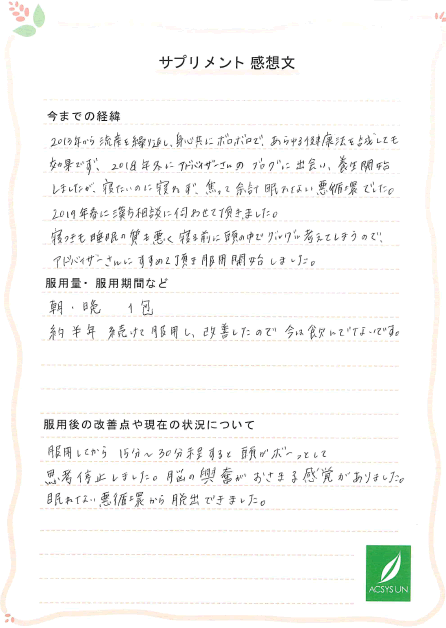 サプリメント 感想文
今までの経緯
2013年から流産を繰り返し、身心共にボロボロで、あらゆる健康法を試しても
効果でず、2018年冬にアドバイザーさんのブログに出会い、養生開始
しましたが、寝たいのに寝れず、焦って余計眠れない悪循環でした。
2019年春に漢方相談に伺わせて頂きました。
寝つきも睡眠の質も悪く寝る前に頭の中でグルグル考えてしまうので、
アドバイザーさんにすすめて頂き服用開始しました。
服用量・服用期間など
朝・晩 1包
約半年 続けて服用し、改善したので今は飲んでないです。
服用後の改善点や現在の状況について
服用してから 15分～30分経すると頭がボーっとして
思考停止しました。脳の興奮がおさまる感覚がありました。
眠れない悪循環から脱出できました。
ACSYSUN